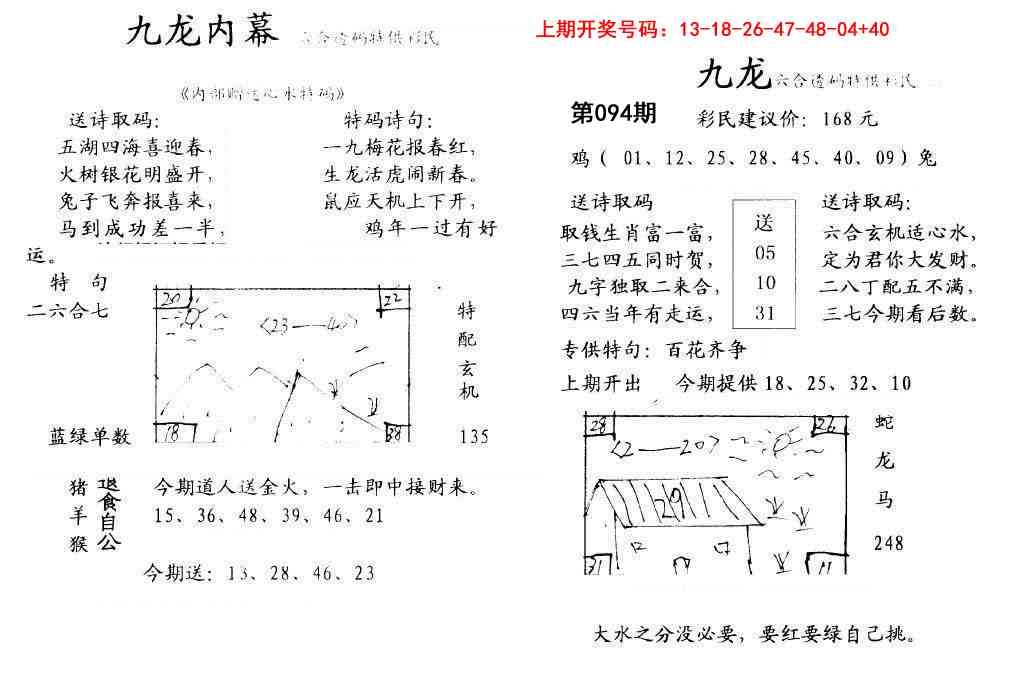 九龙内幕 六合透码特供彩民
《内部赠送心水特码》
送诗取码：
五湖四海喜迎春，
火树银花明盛开，
兔子飞奔报喜来，
马到成功差一半，
特码诗句：
一九梅花报春红，
生龙活虎闹新春。
鼠应天机上下开，
鸡年一过有好
运。
特 句
二六合七
蓝绿单数
20
22
〈23——40〉
18
38
特
配
玄
机
135
猪
羊
猴
退食自公
今期道人送金火，一击即中接财来。
15、36、48、39、46、21
今期送：13、28、46、23
上期开奖号码：13-18-26-47-48-04+40
九龙 六合透码特供彩民
第094期
彩民建议价：168元
鸡（ 01、12、25、28、45、40、09）兔
送诗取码
取钱生肖富一富，
三七四五同时贺，
九字独取二来合，
四六当年有走运，
送
05
10
31
送诗取码：
六合玄机适心水，
定为君你大发财。
二八丁配五不满，
三七今期看后数。
专供特句：百花齐争
上期开出 今期提供18、25、32、10
28
26
〈2——20〉
29
31
11
蛇
龙
马
248
大水之分没必要，要红要绿自己挑。